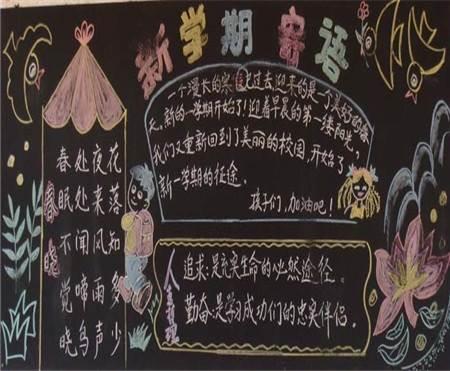 新学期寄语
春晓
春眠不觉晓
处处闻啼鸟
夜来风雨声
花落知多少
一个漫长的寒假已过去,迎来的是一个美好的春
天。新的一学期开始了!迎着早晨的第一缕阳光,
我们又重新回到了美丽的校园,开始了
新一学期的征途。
孩子们,加油吧!
人生
追求:是充实生命的必然途径。
勤奋:是学习成功们的忠实伴侣.